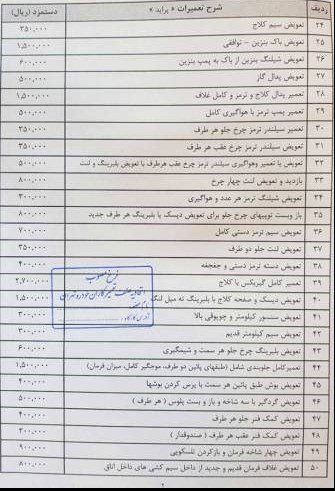 ردیف شرح تعمیرات « پراید » دستمزد (ریال)
۲۴ تعویض سیم کلاج ۳۵۰,۰۰۰
۲۵ تعویض باک بنزین – توافقی ۱,۵۰۰,۰۰۰
۲۶ تعویض شیلنگ بنزین از باک به پمپ بنزین ۶۰۰,۰۰۰
۲۷ تعویض پدال گاز ۵۰۰,۰۰۰
۲۸ تعمیر پدال کلاج و ترمز و کامل غلاف ۱,۵۰۰,۰۰۰
۲۹ تعمیر پمپ ترمز با هواگیری کامل ۵۰۰,۰۰۰
۳۰ تعمیر سیلندر ترمز چرخ جلو هر طرف ۳۵۰,۰۰۰
۳۱ تعویض سیلندر ترمز چرخ عقب هر طرف ۳۵۰,۰۰۰
۳۲ تعویض یا تعمیر وهواگیری سیلندر ترمز چرخ عقب هرطرف با تعویض بلبرینگ و لنت ۵۰۰,۰۰۰
۳۳ بازدید و تعویض لنت چهار چرخ ۸۰۰,۰۰۰
۳۴ تعویض شیلنگ ترمز هر عدد و هواگیری ۳۰۰,۰۰۰
۳۵ باز وبست توپیهای چرخ جلو برای تعویض دیسک یا بلبرینگ هر طرف جدید ۸۰۰,۰۰۰
۳۶ تعویض سیم ترمز دستی کامل ۷۰۰,۰۰۰
۳۷ تعویض لنت جلو دو طرف ۳۵۰,۰۰۰
۳۸ تعویض دسته ترمز دستی و جغجغه ۴۰۰,۰۰۰
۳۹ تعمیر کامل گیربکس با کلاج ۲,۷۰۰,۰۰۰
۴۰ تعویض دیسک و صفحه کلاج با بلبرینگ ته میل لنگ ۱,۵۰۰,۰۰۰
۴۱ تعویض سنسور کیلومتر و چوپوقی بالا ۳۰۰,۰۰۰
۴۲ تعویض سیم کیلومتر قدیم ۳۰۰,۰۰۰
۴۳ تعویض بلبرینگ چرخ جلو هر سمت و شیمگیری ۶۰۰,۰۰۰
۴۴ تعمیرکامل جلوبندی شامل (طبقهای پائین دو طرف، موجگیر کامل، میزان فرمان) ۱,۵۰۰,۰۰۰
۴۵ تعویض بوش طبق پائین هر سمت با پرس کردن بوشها ۴۰۰,۰۰۰
۴۶ تعویض گردگیر یا سه شاخه و باز و بست پلوس ( هر طرف ) ۵۰۰,۰۰۰
۴۷ تعویض کمک فنر جلو هر طرف ۴۰۰,۰۰۰
۴۸ تعویض کمک فنر عقب هر طرف ( صندوقدار )
۴۹ تعویض چهار شاخه فرمان و بازکردن تلسکوپی
۵۰ تعویض غلاف فرمان قدیم و جدید از داخل سیم کشی های داخل اتاق ۸۰۰,۰۰۰
نرخ مصوب
اتحادیه صنف تعمیرکاران خودرو تهران